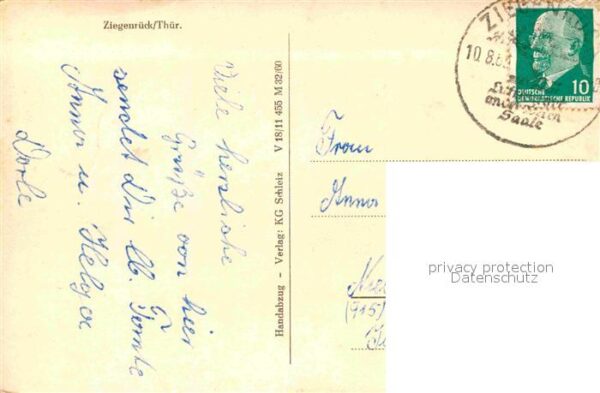 Ziegenrück/Thür.
Viele herzliche
Grüße von hier
sendet Dir lb. Tante
Anna u. Helga
Dorle
Handabzug - Verlag: KG Schleiz V 18/11 455 M 32/60
ZIEGENRÜ
10.8.6
Saale
DEUTSCHE
DEMOKRATISCHE REPUBLIK
10
Frau
Anna
privacy protection
Datenschutz